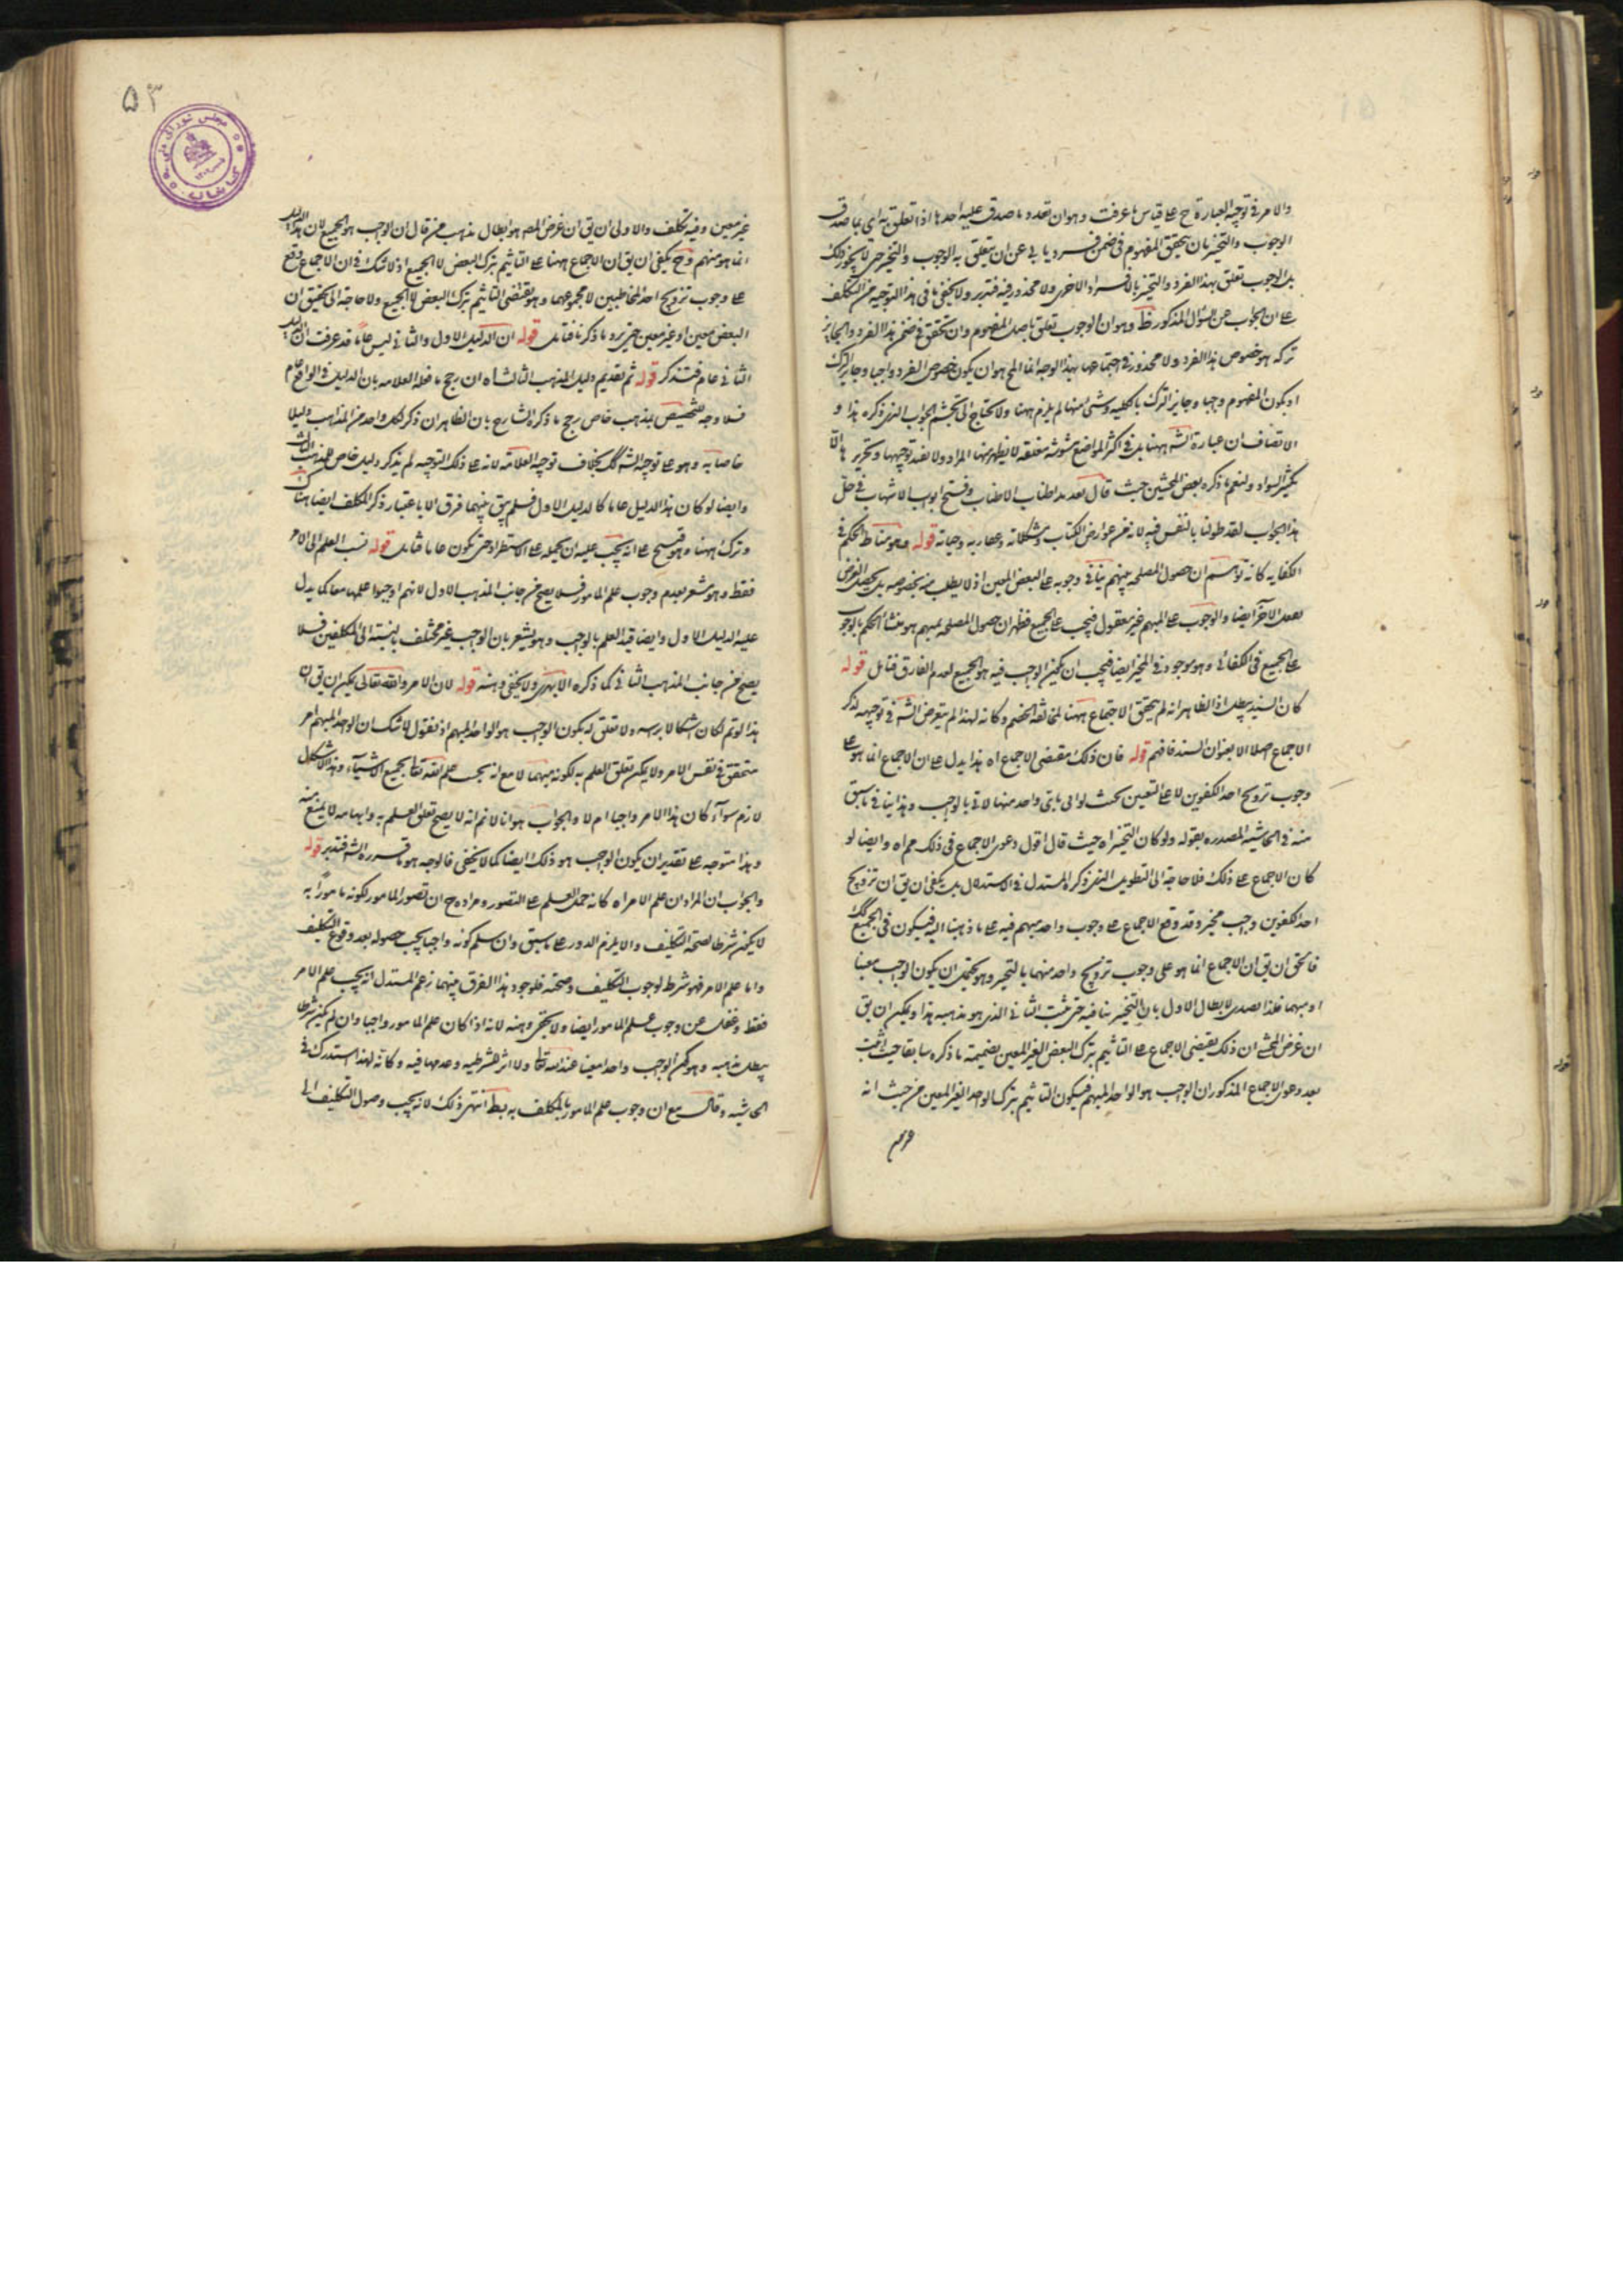 والامر فی توجیه العبارة ح علی قیاس ما عرفت وهو ان تعدد ما صدق علیه احدها اذا تعلق به ای بما صدق
الوجوب والتخییر بان یحقق المفهوم فی ضمن فرد یابی عن ان یتعلق به الوجوب والتخییر حتی لا یجوز ذلک
بل الوجوب تعلق بهذا الفرد والتخییر بالافراد الاخری ولا محذور فیه فتدبر ولا یخفی ما فی هذا التوجیه من التکلف
علی ان الجواب عن السؤال المذکور ظ وهو ان الوجوب تعلق باصل المفهوم وان تحقق فی ضمن هذا الفرد والجایز
ترکه هو خصوص هذا الفرد ولا محذور فی اجتماعهما بهذا الوجه انما المح هو ان یکون خصوص الفرد واجبا وجایز الترک
او یکون المفهوم واجبا وجایز الترک بالکلیه وشیء منهما لم یلزم ههنا ولا یحتاج الی تجشم الجواب الذی ذکره هذا و
الانصاف ان عبارة الشه ههنا بل فی اکثر المواضع مشوشه مغلقه لا یظهر منها المراد ولا یفید توجیهها وتحریرها الا
تکثیر السواد ولنعم ما ذکره بعض المحشین حیث قال بعد مد اطناب الاطناب وفتح ابواب الاشهاب فی حل
هذا الجواب لقد طولنا بالنفس فیه لانه من عوارض الکتاب ومشکلاته قوله وهو مناط الحکم فی
الکفایه کانه توهم ان حصول المصلحه بمبهم ینافی وجوبه علی البعض المعین اذ لا یطلب منه بخصوصه بل یحصل الغرض
بفعل الآخر ایضا والوجوب علی المبهم غیر معقول فیجب علی الجمیع فظهر ان حصول المصلحه بمبهم هو منشأ الحکم بالوجوب
علی الجمیع فی الکفائی وهو موجود فی المخیر ایضا فیجب ان یکون الواجب فیه هو الجمیع لعدم الفارق فتامل قوله
کان السند یبطل اذ الظاهر انه لم یتحقق الاجماع ههنا لمخالفة الخصم وکانه لهذا لم یتعرض الشه فی توجیهه لذکر
الاجماع اصلا الا بعنوان السند فافهم قوله فان ذلک مقتضی الاجماع اه هذا یدل علی ان الاجماع انما هو علی
وجوب تزویج احد الکفوین لا علی التعیین بحیث لو اتی بای واحد منهما لاتی بالواجب وهذا ینافی ما سبق
منه فی الحاشیه المصدره بقوله ولو کان التخییر اه حیث قال اقول دعوی الاجماع فی ذلک مم اه وایضا لو
کان الاجماع علی ذلک فلا حاجة الی التطویل الذی ذکره المستدل فی الاستدلال بل یکفی ان یق ان تزویج
احد الکفوین واجب مخیر وقد وقع الاجماع علی وجوب واحد مبهم فیه علی ما ذهبنا الیه فیکون فی الجمیع کک
فالحق ان یق ان الاجماع انما هو علی وجوب تزویج واحد منهما بالتخییر وهو یحتمل ان یکون الواجب معینا
او مبهما فلذا تصدی لابطال الاول بان التخییر ینافیه حتی یثبت الثانی الذی هو مذهبه هذا ویمکن ان یق
ان غرض المحشی ان ذلک یقتضی الاجماع علی التاثیم بترک البعض الغیر المعین بضمیمة ما ذکره سابقا حیث اثبت
بعد دعوی الاجماع المذکور ان الواجب هو الواحد المبهم فیکون التاثیم بترک الواحد الغیر المعین من حیث انه
۵۳
غیر معین وفیه تکلف والاولی ان یق ان غرض المص هو ابطال مذهب من قال ان الواجب هو الجمیع لان هذا
انما هو منهم وح یکفی ان یق ان الاجماع ههنا علی التاثیم بترک البعض لا الجمیع اذ لا شک فی ان الاجماع وقع
علی وجوب تزویج احد الخاطبین لا مجموعهما وهو یقتضی التاثیم بترک البعض لا الجمیع ولا حاجة الی تحقیق ان
البعض معین او غیر معین حتی یرد ما ذکرنا فتامل قوله ان الدلیل الاول والثانی لیس عاما قد عرفت ان الدلیل
الثانی عام فتذکر قوله ثم تقدیم دلیل المذهب الثالث اه ان رجح ما فعله العلامه بان الدلیل فی الواقع عام
فلا وجه لتخصیص بمذهب خاص رجح ما ذکره الشارح بان الظاهر ان ذکر لکل واحد من المذاهب دلیلا
خاصا به وهو علی توجیه الشه کک بخلاف توجیه العلامه لانه علی ذلک التوجیه لم یذکر دلیل خاص للمذهب الثالث
وایضا لو کان هذا الدلیل عاما کالدلیل الاول فلم یبق بینهما فرق الا باعتبار ذکر المکلف ایضا هناک
وترک ههنا وهو قبیح علی انه یجب علیه ان یحمله علی الاستطراد حتی یکون عاما فتامل قوله نسب العلم الی الآمر
فقط وهو مشعر بعدم وجوب علم المامور فلا یصح من جانب المذهب الاول لانهم اوجبوا علمهما معا کما یدل
علیه الدلیل الاول وایضا قید العلم بالواجب وهو یشعر بان الواجب غیر مختلف بالنسبة الی المکلفین فلا
یصح من جانب المذهب الثانی کما ذکره الابهری ولا یخفی وهنه قوله لان الامر والله تعالی یمکن ان یق ان
هذا لو تم لکان اشکالا براسه ولا تعلق له بکون الواجب هو الواحد المبهم اذ نقول لا شک ان الواحد المبهم امر
متحقق فی نفس الامر ولا یمکن تعلق العلم به لکونه مبهما لا مع انه یجب علم الله تعالی بجمیع الاشیاء وهذا الاشکال
لازم سواء کان هذا الامر واجبا ام لا والجواب هو انا لا نم انه لا یصح تعلق العلم به وابهامه لا یمنع منه
وهذا متوجه علی تقدیر ان یکون الواجب هو ذلک ایضا کما لا یخفی فالوجه هو ما قرره الشه فتدبر قوله
والجواب ان المراد ان علم الامر اه کانه حمل العلم علی التصور ومراده ح ان تصور المامور لکونه مامورا به
لا یکون شرطا لصحة التکلیف والا یلزم الدور علی ما سبق وان سلم کونه واجبا یجب حصوله بعد وقوع التکلیف
واما علم الامر فهو شرط لوجوب التکلیف وصحته فلوجود هذا الفرق بینهما زعم المستدل انه یجب علم الامر
فقط وغفل عن وجوب علم المامور ایضا ولا یخفی وهنه لانه اذا کان علم المامور واجبا وان لم یکن شرطا
یبطل مذهبه وهو کون الواجب واحدا معینا عند الله تعالی ولا اثر للشرطیه وعدمها فیه وکانه لهذا استدرک فی
الحاشیه وقال مع ان وجوب علم المامور بالمکلف به یبطل ذلک لانه یجب وصول التکلیف الی